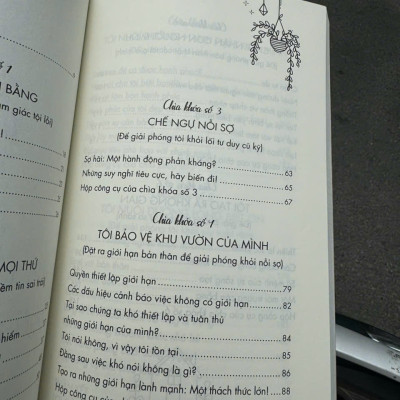 ố 1
I BẰNG
ảm giác tội lỗi)
MỌI THỨ
ềm tin sai trái)
hiểm
Chìa khóa số 3
CHẾ NGỰ NỖI SỢ
(Để giải phóng tôi khỏi lối tư duy cũ kỹ)
Sợ hãi: Một hành động phản kháng? 63
Những suy nghĩ tiêu cực, hãy biến đi! 65
Hộp công cụ của chìa khóa số 3 67
Chìa khóa số 4
TÔI BẢO VỆ KHU VƯỜN CỦA MÌNH
(Đặt ra giới hạn bản thân để giải phóng khỏi nỗi sợ)
Quyền thiết lập giới hạn 79
Các dấu hiệu cảnh báo việc không có giới hạn 82
Tại sao chúng ta khó thiết lập và tuân thủ
những giới hạn của mình? 84
Tôi nói không, vì vậy tôi tồn tại 85
Đằng sau việc khó nói không là gì? 86
Tạo ra những giới hạn lành mạnh: Một thách thức lớn! 88
Hộp công cụ của